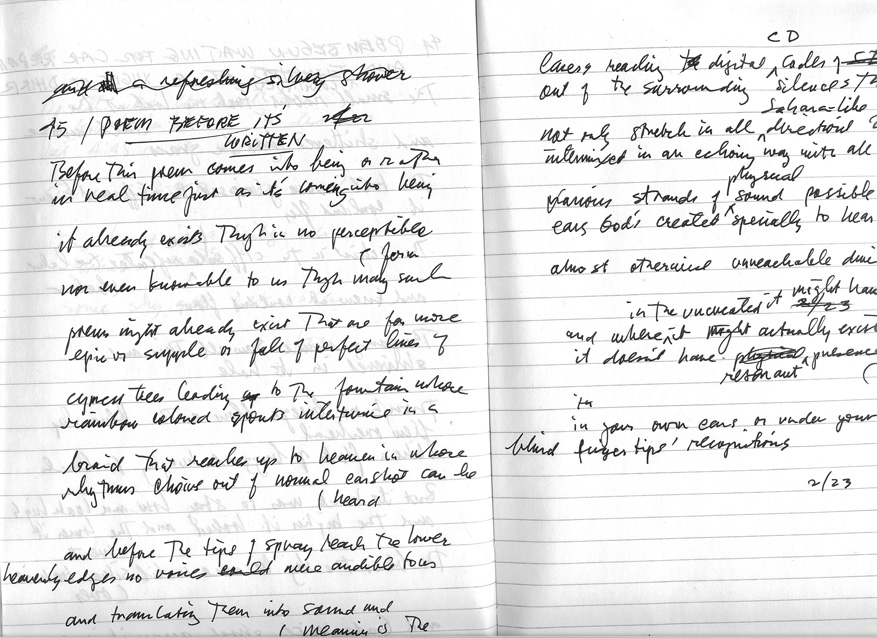 a refreshing silvery shower
45 / POEM BEFORE IT'S
WRITTEN
Before this poem comes into being or rather
in real time just as it's coming into being
it already exists though in no perceptible
( form
nor even knowable to us though many such
poems might already exist that are far more
epic or supple or full of perfect lines of
cypress trees leading up to the fountain where
rainbow colored spouts intertwine in a
braid that reaches up to heaven in whose
rhythms choirs out of normal earshot can be
( heard
and before the tips of spray reach the lower
heavenly edges no voices could were audible to us
and translating them into sound and
( meaning is the
CD
lasers reading digital codes of
out of the surrounding silences th
Sahara-like
not only stretch in all directions
intermixed in an echoing way with all
physical
various strands of sound possible
ears God's created specially to hear
almost otherwise unreachable
in the uncreated it might have
2/23
and where it might actually exist
it doesn't have physical presence
resonant (
in
in your own ears or under your
blind fingertips' recognitions
2/23